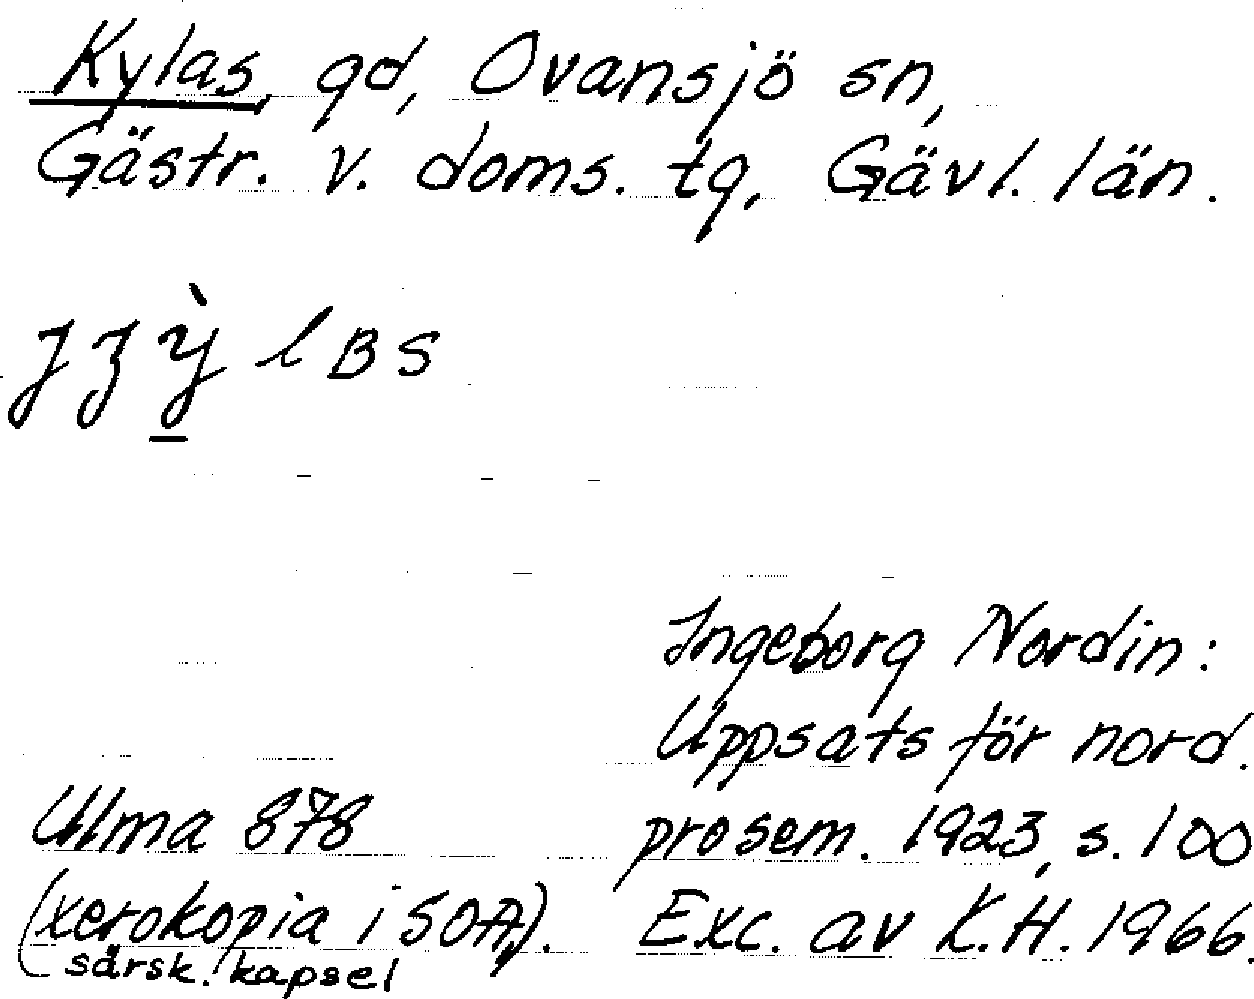 Kylas, gd, Ovansjö sn,
Gästr. v. doms. tg, Gävl. län.
lBS
Ingeborg Nordin:
Uppsats för nord.
Ulma 878 prosem. 1923, s. 100
(xerokopia i SOA,). Exc. av K.H. 1966.
särsk. kapsel